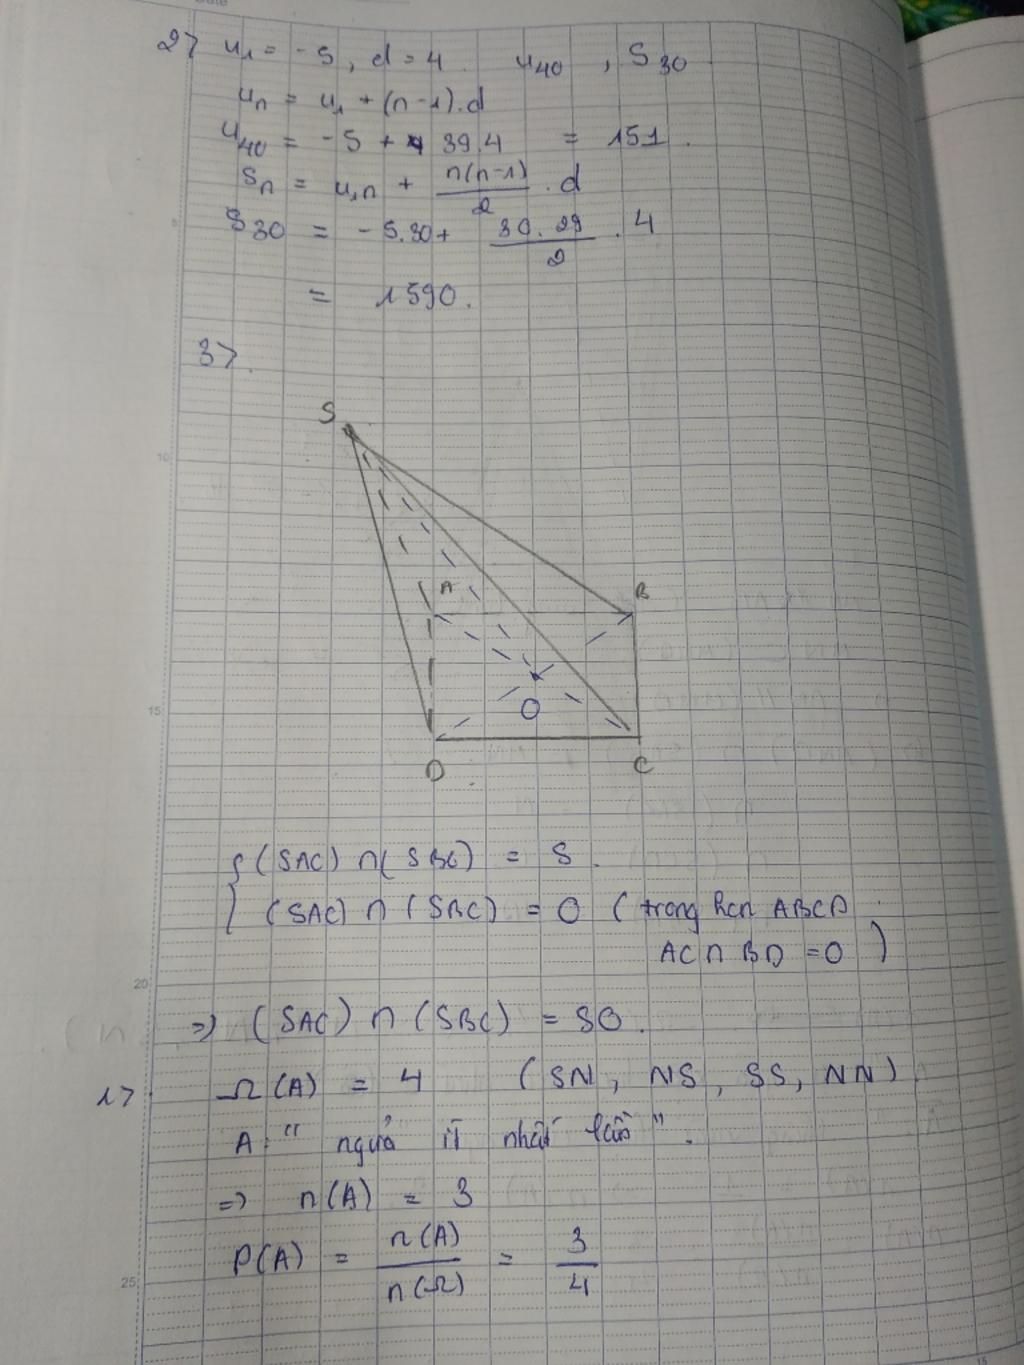 2> u₁ = -5, d = 4. u₄₀, S₃₀
uₙ = u₁ + (n-1).d
u₄₀ = -5 + 39.4 = 151.
Sₙ = u₁n + n(n-1)/2 . d
S₃₀ = -5.30 + 30.29/2 . 4
= 1590.
3>.
S
A
B
O
D
C
{ (SAC) ∩ (SBC) = S.
(SAC) ∩ (SBC) = O ( trong hcn ABCD
AC ∩ BD = O )
=> (SAC) ∩ (SBC) = SO.
1> Ω(A) = 4 (SN, NS, SS, NN)
A: " ngửa ít nhất lần ".
=> n(A) = 3
P(A) = n(A)/n(Ω) = 3/4
10
15
20
25